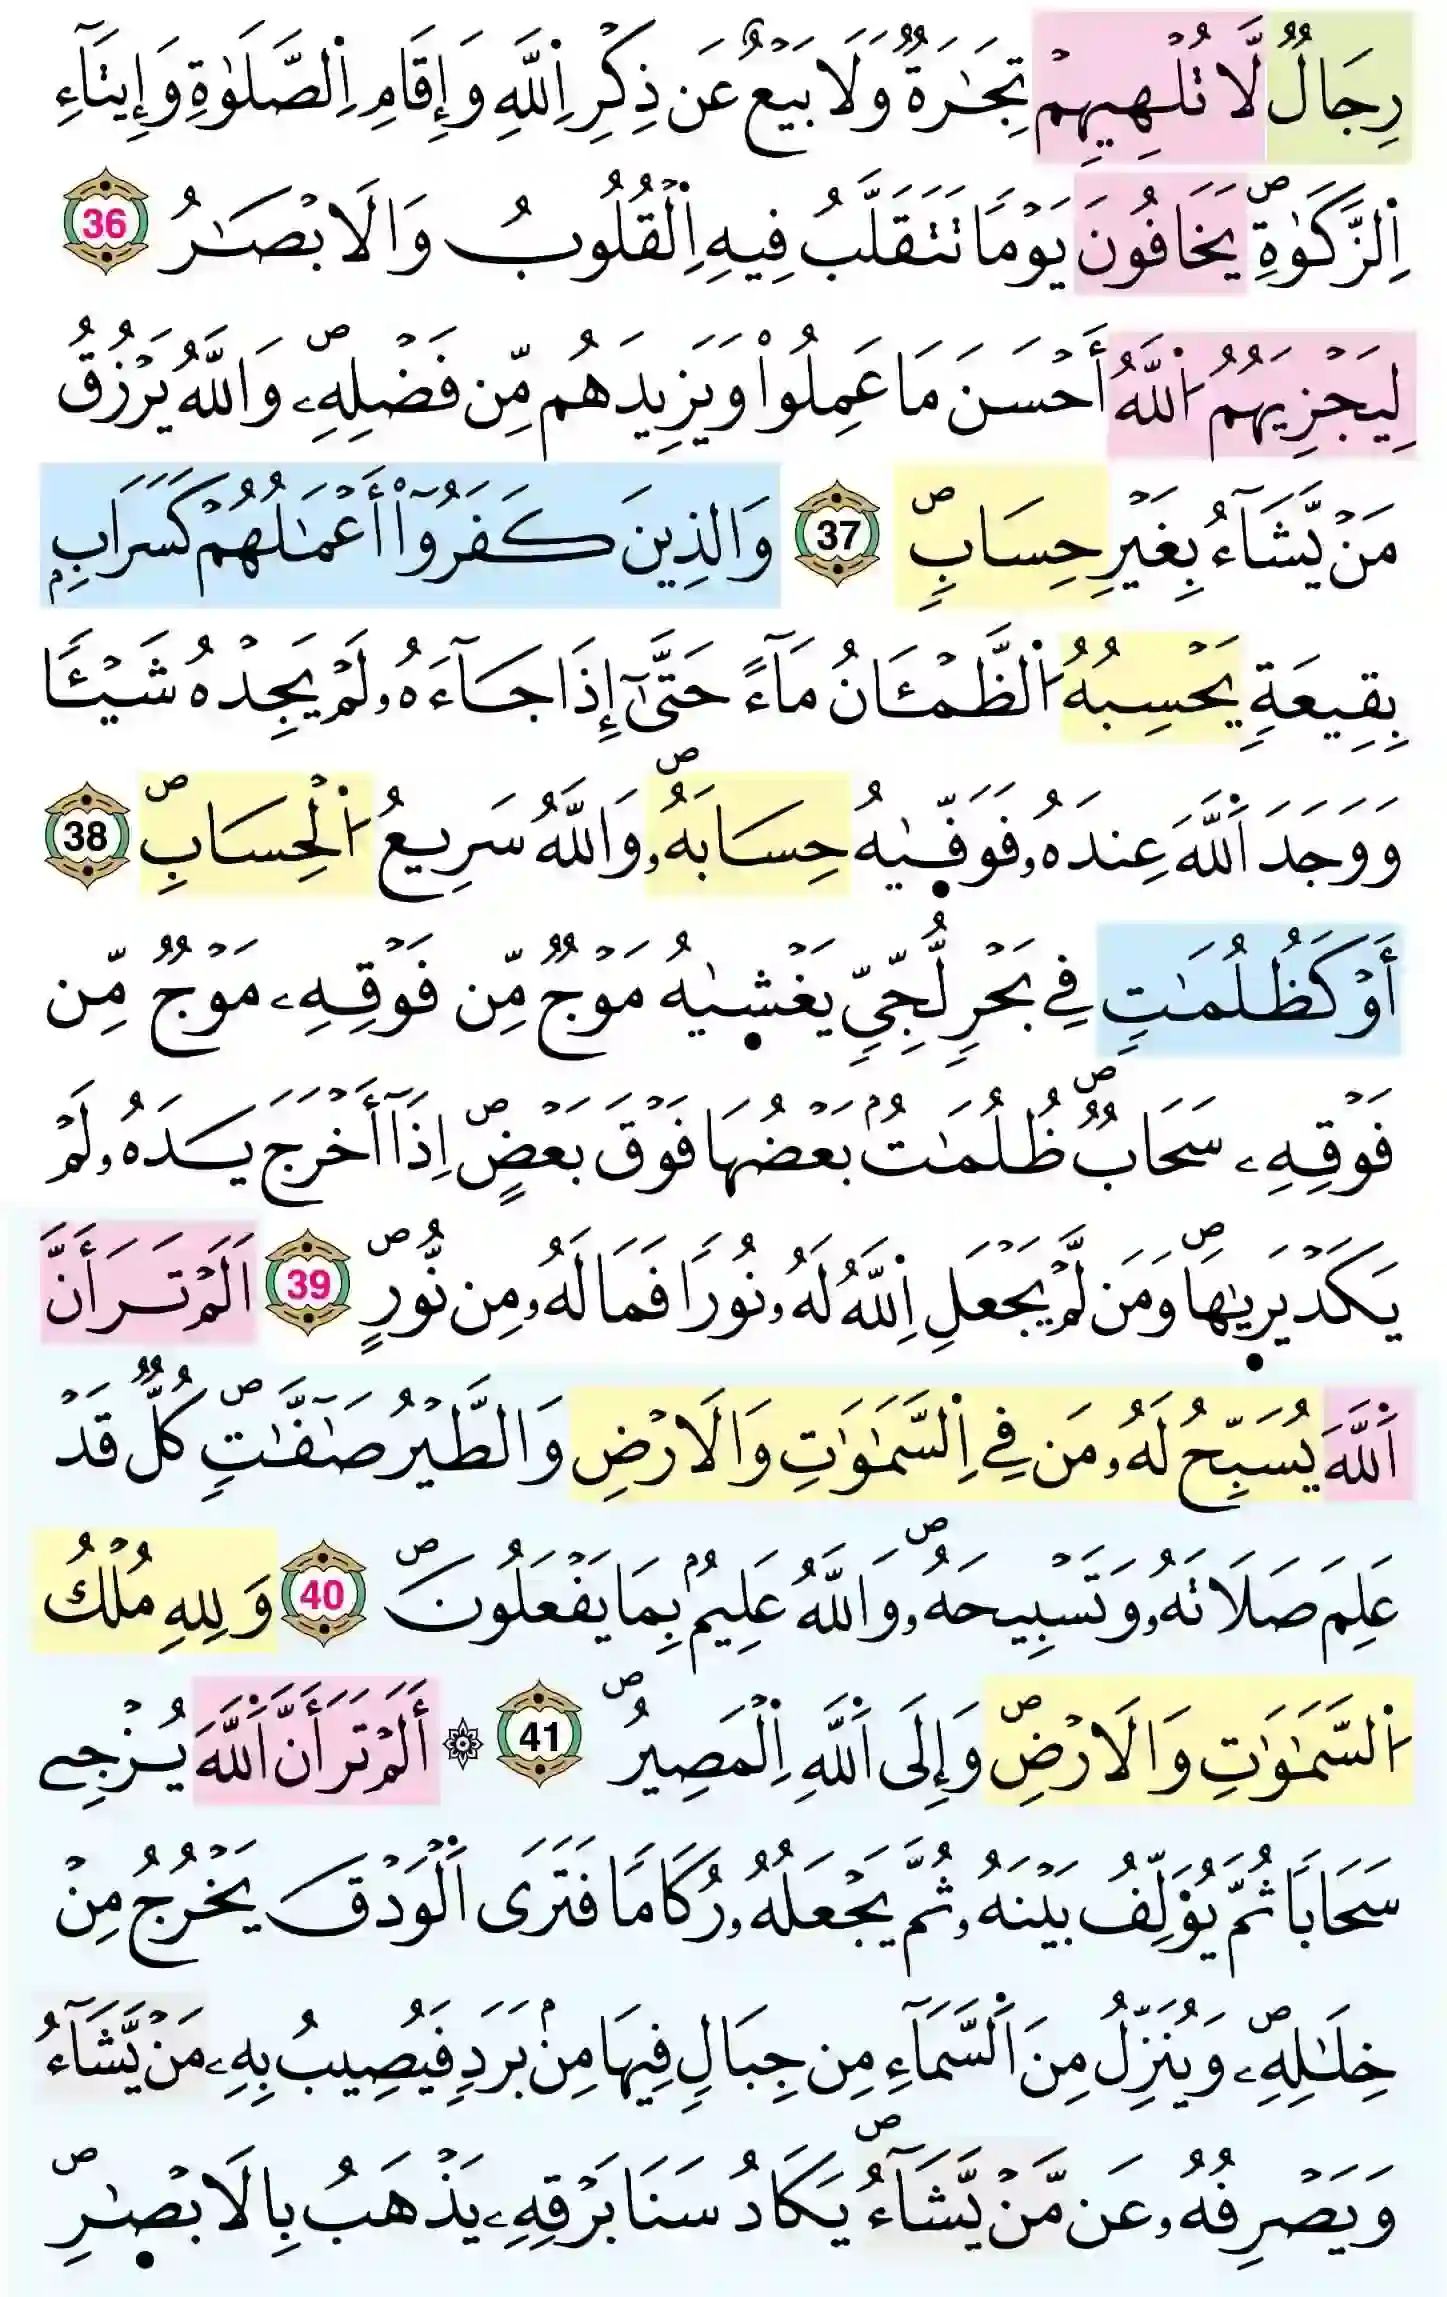 رِجَالٌ لَّا تُلْهِيهِمْ تِجَٰرَةٌ وَلَا بَيْعٌ عَن ذِكْرِ اِ۬للَّهِ وَإِقَامِ اِ۬لصَّلَوٰةِ وَإِيتَآءِ
اِ۬لزَّكَوٰةِۖ يَخَافُونَ يَوْماٗ تَتَقَلَّبُ فِيهِ اِ۬لْقُلُوبُ وَالَابْصَٰرُ 36
لِيَجْزِيَهُمُ اُ۬للَّهُ أَحْسَنَ مَا عَمِلُواْ وَيَزِيدَهُم مِّن فَضْلِهِۦۖ وَاللَّهُ يَرْزُقُ
مَنْ يَّشَآءُ بِغَيْرِ حِسَابٖۖ 37 وَالذِينَ كَفَرُوٓاْ أَعْمَٰلُهُمْ كَسَرَابِۢ
بِقِيعَةٖ يَحْسِبُهُ اُ۬لظَّمْـَٔانُ مَآءً حَتَّىٰٓ إِذَا جَآءَهُۥ لَمْ يَجِدْهُ شَيْـٔاٗ
وَوَجَدَ اَ۬للَّهَ عِندَهُۥ فَوَفّ۪يٰهُ حِسَابَهُۥۖ وَاللَّهُ سَرِيعُ اُ۬لْحِسَابِۖ 38
أَوْ كَظُلُمَٰتٖ فِے بَحْرٖ لُّجِّيّٖ يَغْش۪يٰهُ مَوْجٌ مِّن فَوْقِهِۦ مَوْجٌ مِّن
فَوْقِهِۦ سَحَابٌۖ ظُلُمَٰتُۢ بَعْضُهَا فَوْقَ بَعْضٍۖ اِذَآ أَخْرَجَ يَدَهُۥ لَمْ
يَكَدْ يَر۪يٰهَاۖ وَمَن لَّمْ يَجْعَلِ اِ۬للَّهُ لَهُۥ نُوراٗ فَمَا لَهُۥ مِن نُّورٍۖ 39 اَلَمْ تَرَ أَنَّ
اَ۬للَّهَ يُسَبِّحُ لَهُۥ مَن فِے اِ۬لسَّمَٰوَٰتِ وَالَارْضِ وَالطَّيْرُ صَٰٓفَّٰتٖۖ كُلٌّ قَدْ
عَلِمَ صَلَاتَهُۥ وَتَسْبِيحَهُۥۖ وَاللَّهُ عَلِيمُۢ بِمَا يَفْعَلُونَۖ 40 وَلِلهِ مُلْكُ
اُ۬لسَّمَٰوَٰتِ وَالَارْضِۖ وَإِلَى اَ۬للَّهِ اِ۬لْمَصِيرُۖ 41 ۞ أَلَمْ تَرَ أَنَّ اَ۬للَّهَ يُزْجِے
سَحَاباٗ ثُمَّ يُؤَلِّفُ بَيْنَهُۥ ثُمَّ يَجْعَلُهُۥ رُكَاماٗ فَتَرَى اَ۬لْوَدْقَ يَخْرُجُ مِنْ
خِلَٰلِهِۦۖ وَيُنَزِّلُ مِنَ اَ۬لسَّمَآءِ مِن جِبَالٖ فِيهَا مِنۢ بَرَدٖ فَيُصِيبُ بِهِۦ مَنْ يَّشَآءُ
وَيَصْرِفُهُۥ عَن مَّنْ يَّشَآءُۖ يَكَادُ سَنَا بَرْقِهِۦ يَذْهَبُ بِالَابْصٰ۪رِۖ